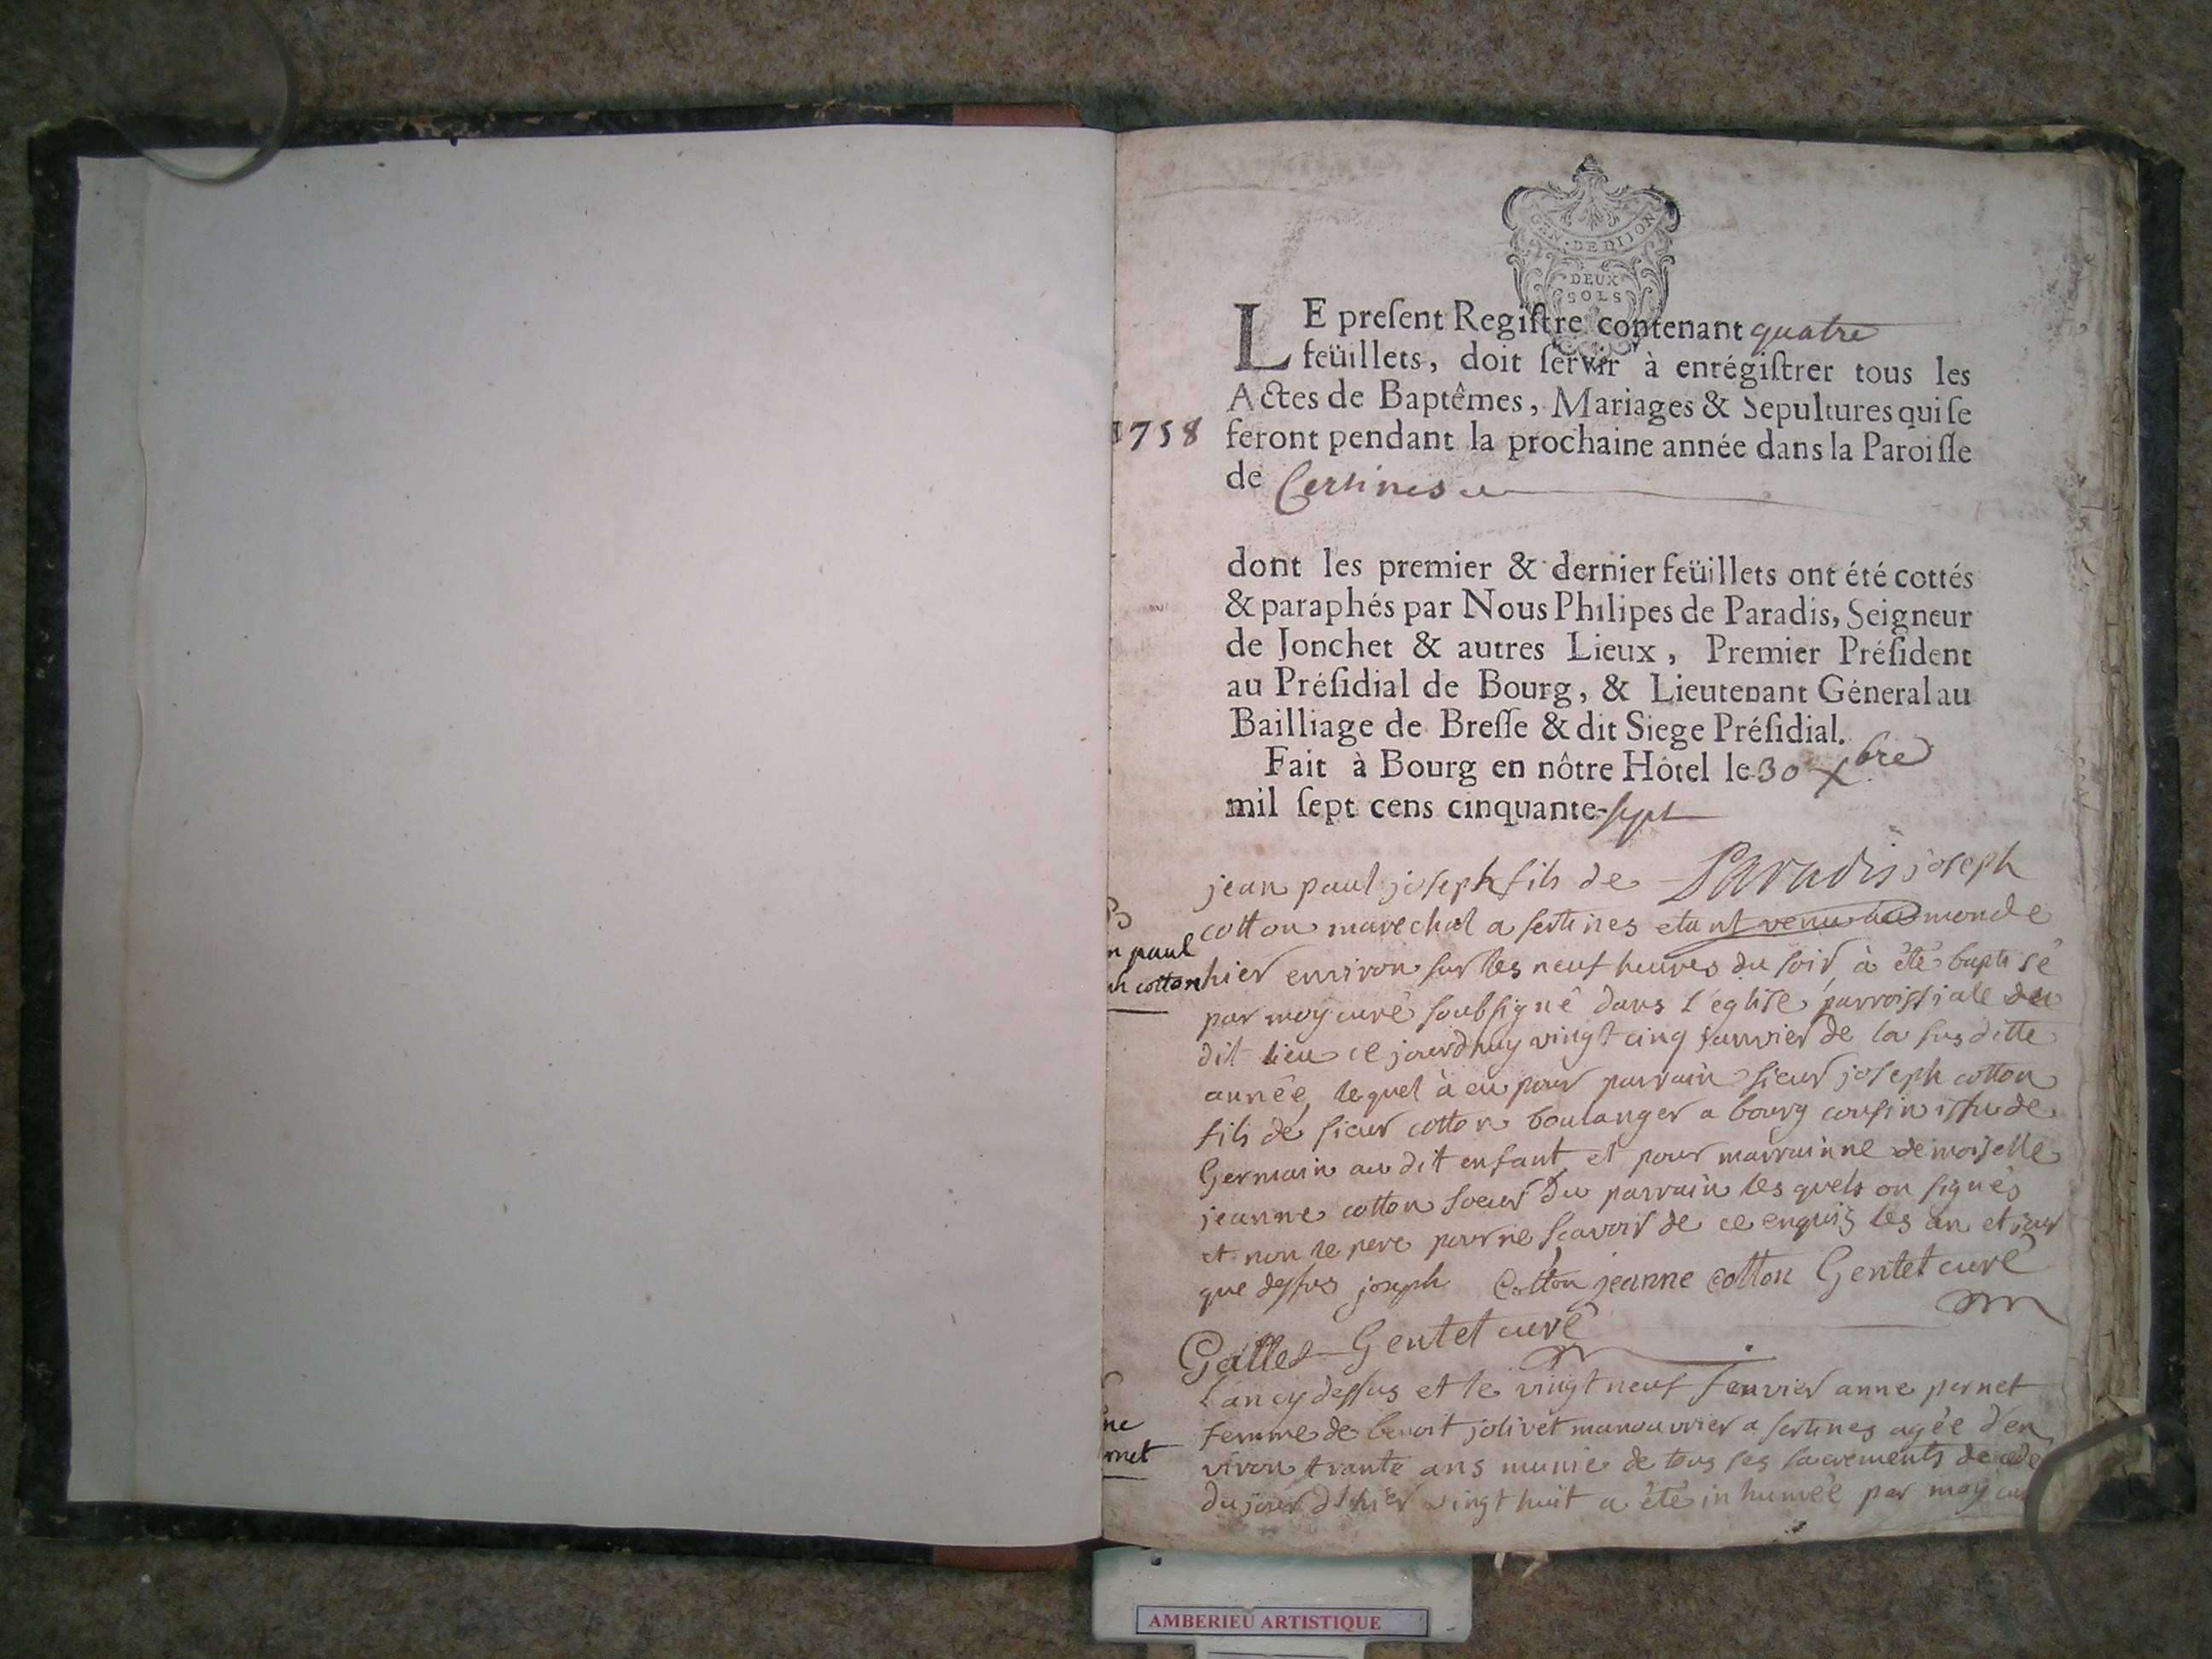 GEN. DE DIJON
DEUX
SOLS
LE preſent Regiſtre contenant quatre
feüillets, doit ſervir à enrégiſtrer tous les
Actes de Baptêmes, Mariages & Sepultures qui ſe
1758
feront pendant la prochaine année dans la Paroiſſe
de Certines
dont les premier & dernier feüillets ont été cottés
& paraphés par Nous Philipes de Paradis, Seigneur
de Jonchet & autres Lieux, Premier Préſident
au Préſidial de Bourg, & Lieutenant Géneral au
Bailliage de Breſſe & dit Siege Préſidial.
Fait à Bourg en nôtre Hôtel le 30 Xbre
mil ſept cens cinquante-sept
jean paul joseph fils de Paradis joseph
cotton marechal a sertines etant venu au monde
n paul
ph cotton
hier environ sur les neuf heures du soir à été baptisé
par moy curé soubsigné dans l'eglise parroissiale du
dit lieu ce jourdhuy vingt cinq janvier de la susditte
année, lequel à eu pour parrain sieur joseph cotton
fils de sieur cotton boulanger a bourg cousin issu de
Germain au dit enfant et pour marrainne demoiselle
jeanne cotton soeur du parrain les quels on signés
et non le pere pour ne sçavoir de ce enquis les an et jour
que dessus joseph Cotton jeanne cotton Gentet curé
Gallet Gentet curé
L'an cy dessus et le vingt neuf Janvier anne pernet
ne
rnet
femme de benoit jolivet manouvrier a sertines agée d'en
viron trante ans munie de tous ses sacrements decedé
du jour d'hier vingt huit a été inhumée par moy cu
AMBERIEU ARTISTIQUE